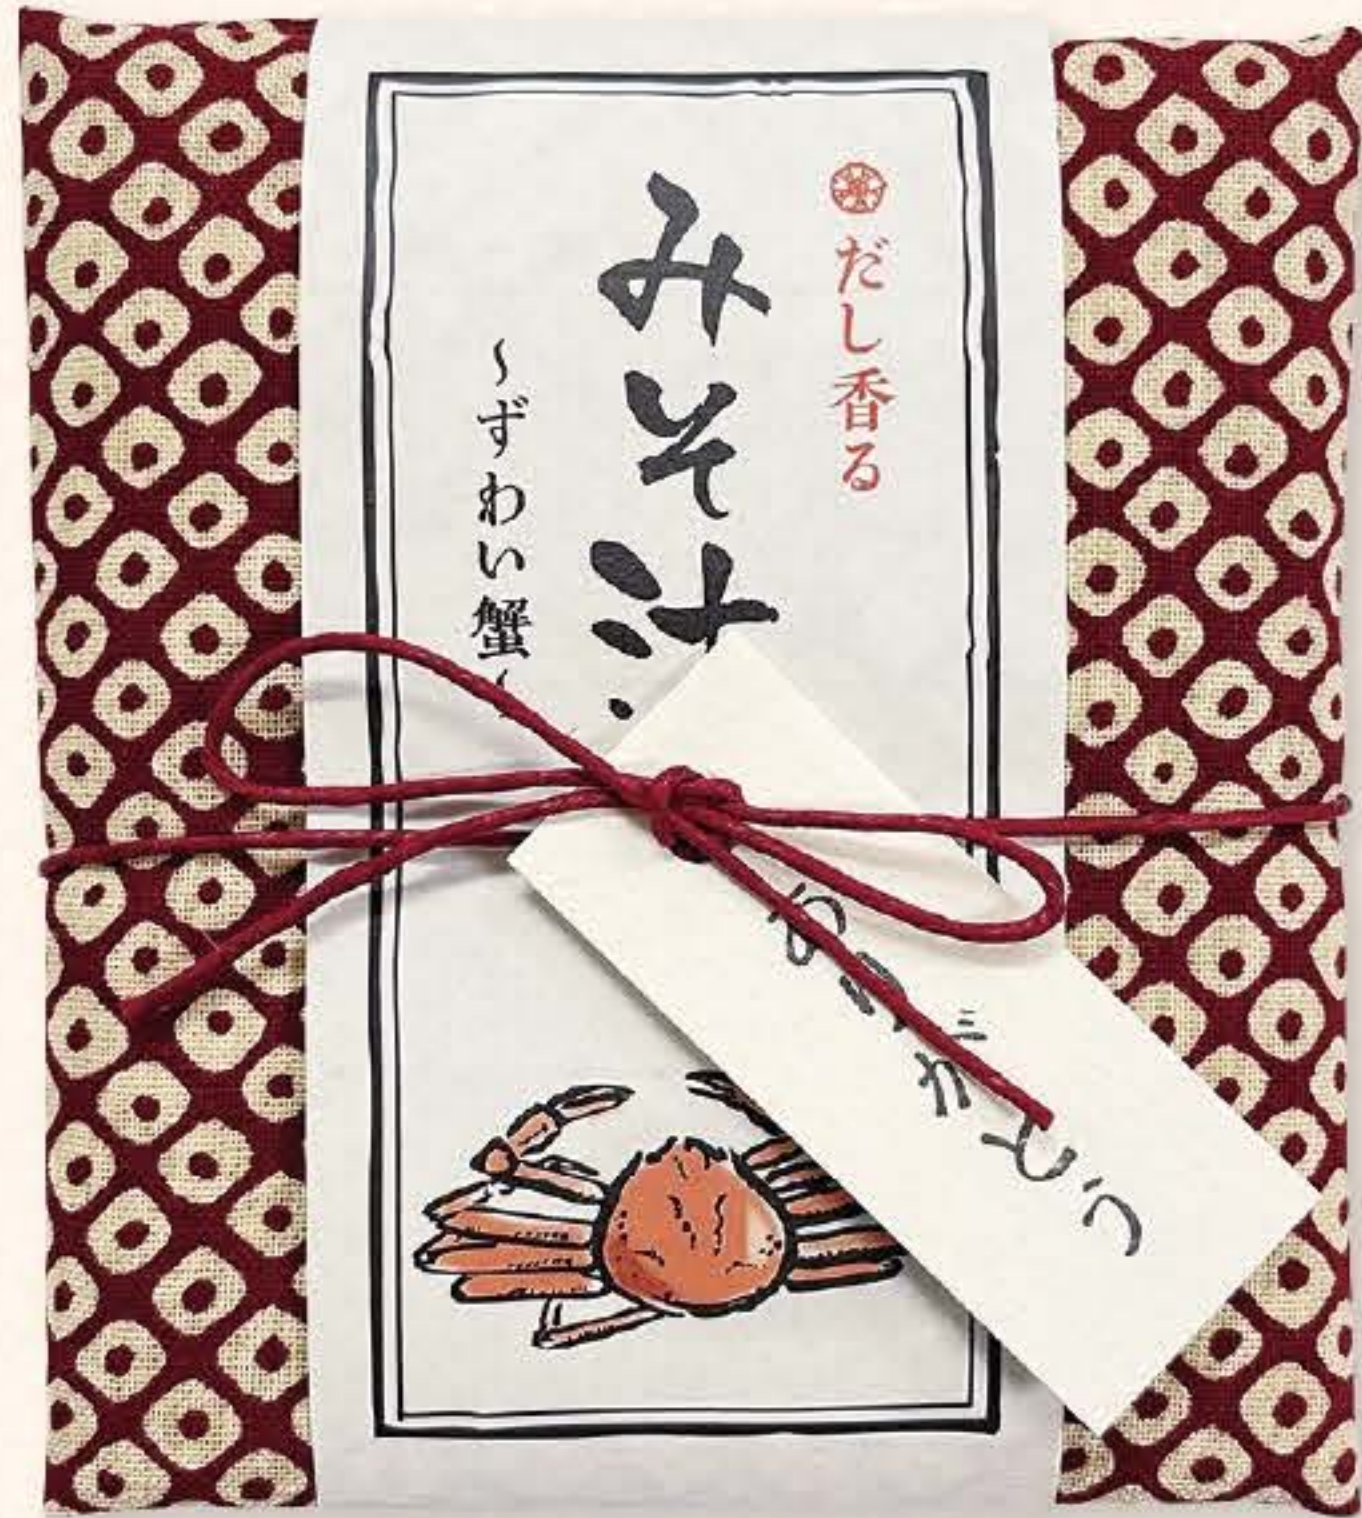 だし香る
みそ汁
〜ずわい蟹〜
ありがとう